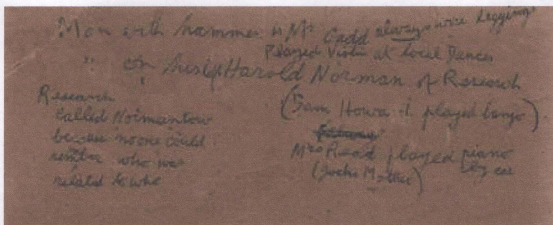 Man with hammer is Mr Cadd always wore leggings
Played Violin at local Dances
" on his left Harold Norman of Research
(Sam Howard played banjo)
Research
called Normantow
because no one could
who was
related to who
Mrs Read played piano
by ear
(Jocks Mother)